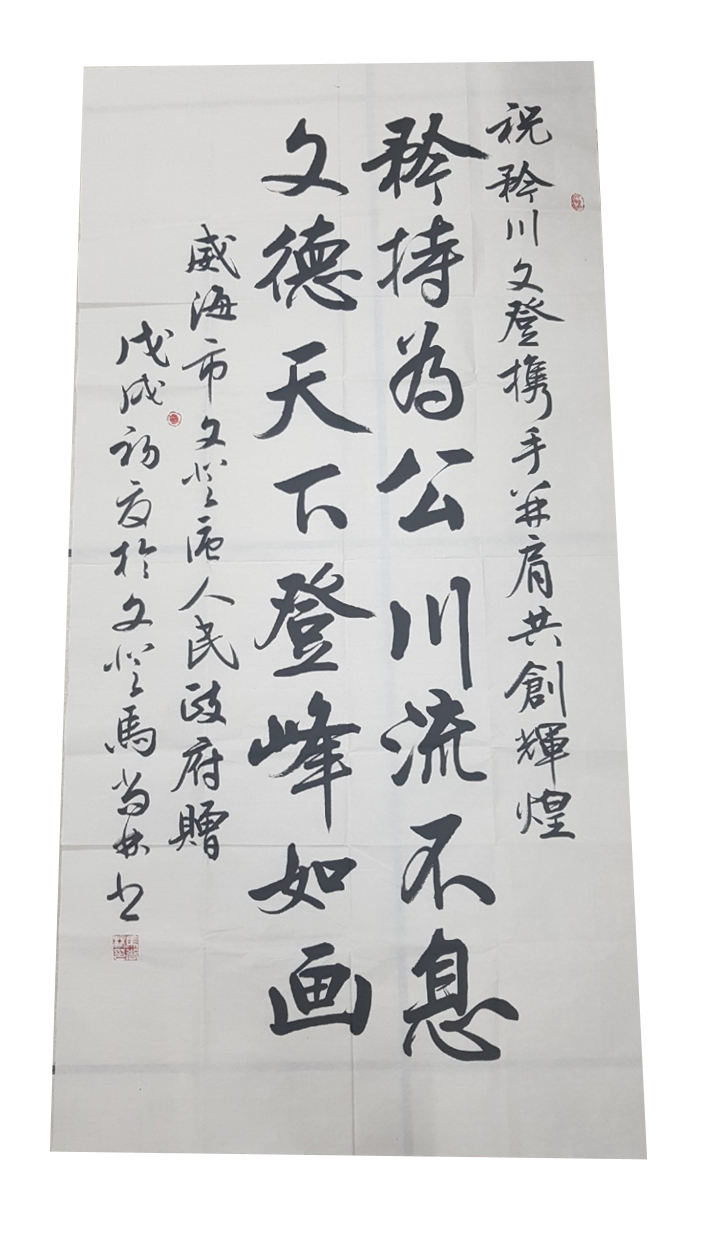 祝矜川文登携手并肩共創輝煌
矜持为公川流不息
文德天下登峰如画
威海市文登区人民政府贈
戊戌初夏於文登馬尚林书